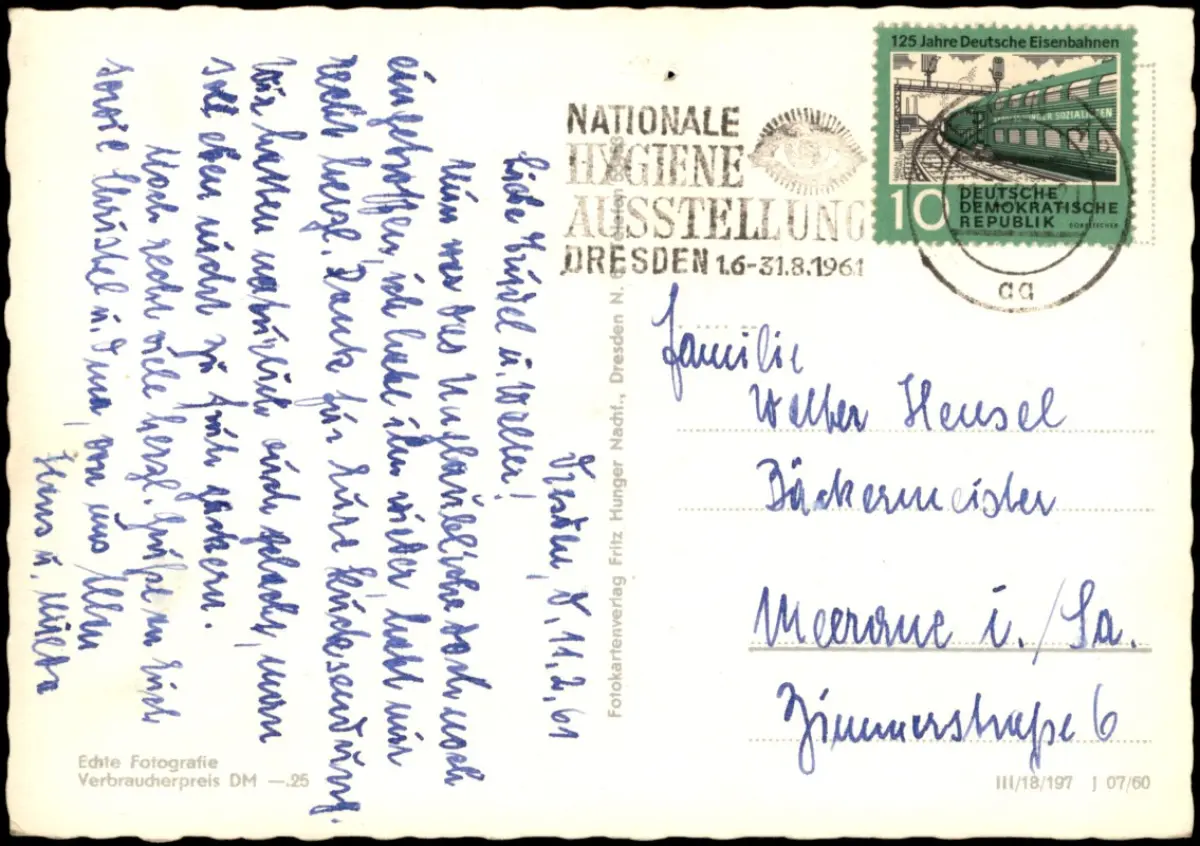 125 Jahre Deutsche Eisenbahnen
SOZIALISTEN
10
DEUTSCHE
DEMOKRATISCHE
REPUBLIK
NATIONALE
HYGIENE
AUSSTELLUNG
DRESDEN 1.6-31.8.1961
aa
Familie
Walter Hensel
Bäckermeister
Meerane i./Sa.
Zimmerstraße 6
Dresden, d. 11.2.61
Liebe Trudel u. Walter!
Nun war das Unglaubliche doch noch
eingetroffen, ich habe ihn wieder, habt mir
recht herzl. Dank für Eure Rücksendung.
Wir hatten natürlich auch gelacht, man
soll eben nicht zu früh gackern.
Noch recht viele herzl. Grüße an Euch
sowie Christel u. Oma, von uns Allen
Hans u.
Fotokartenverlag Fritz Hunger Nachf., Dresden N.
Echte Fotografie
Verbraucherpreis DM —.25
III/18/197 J 07/60